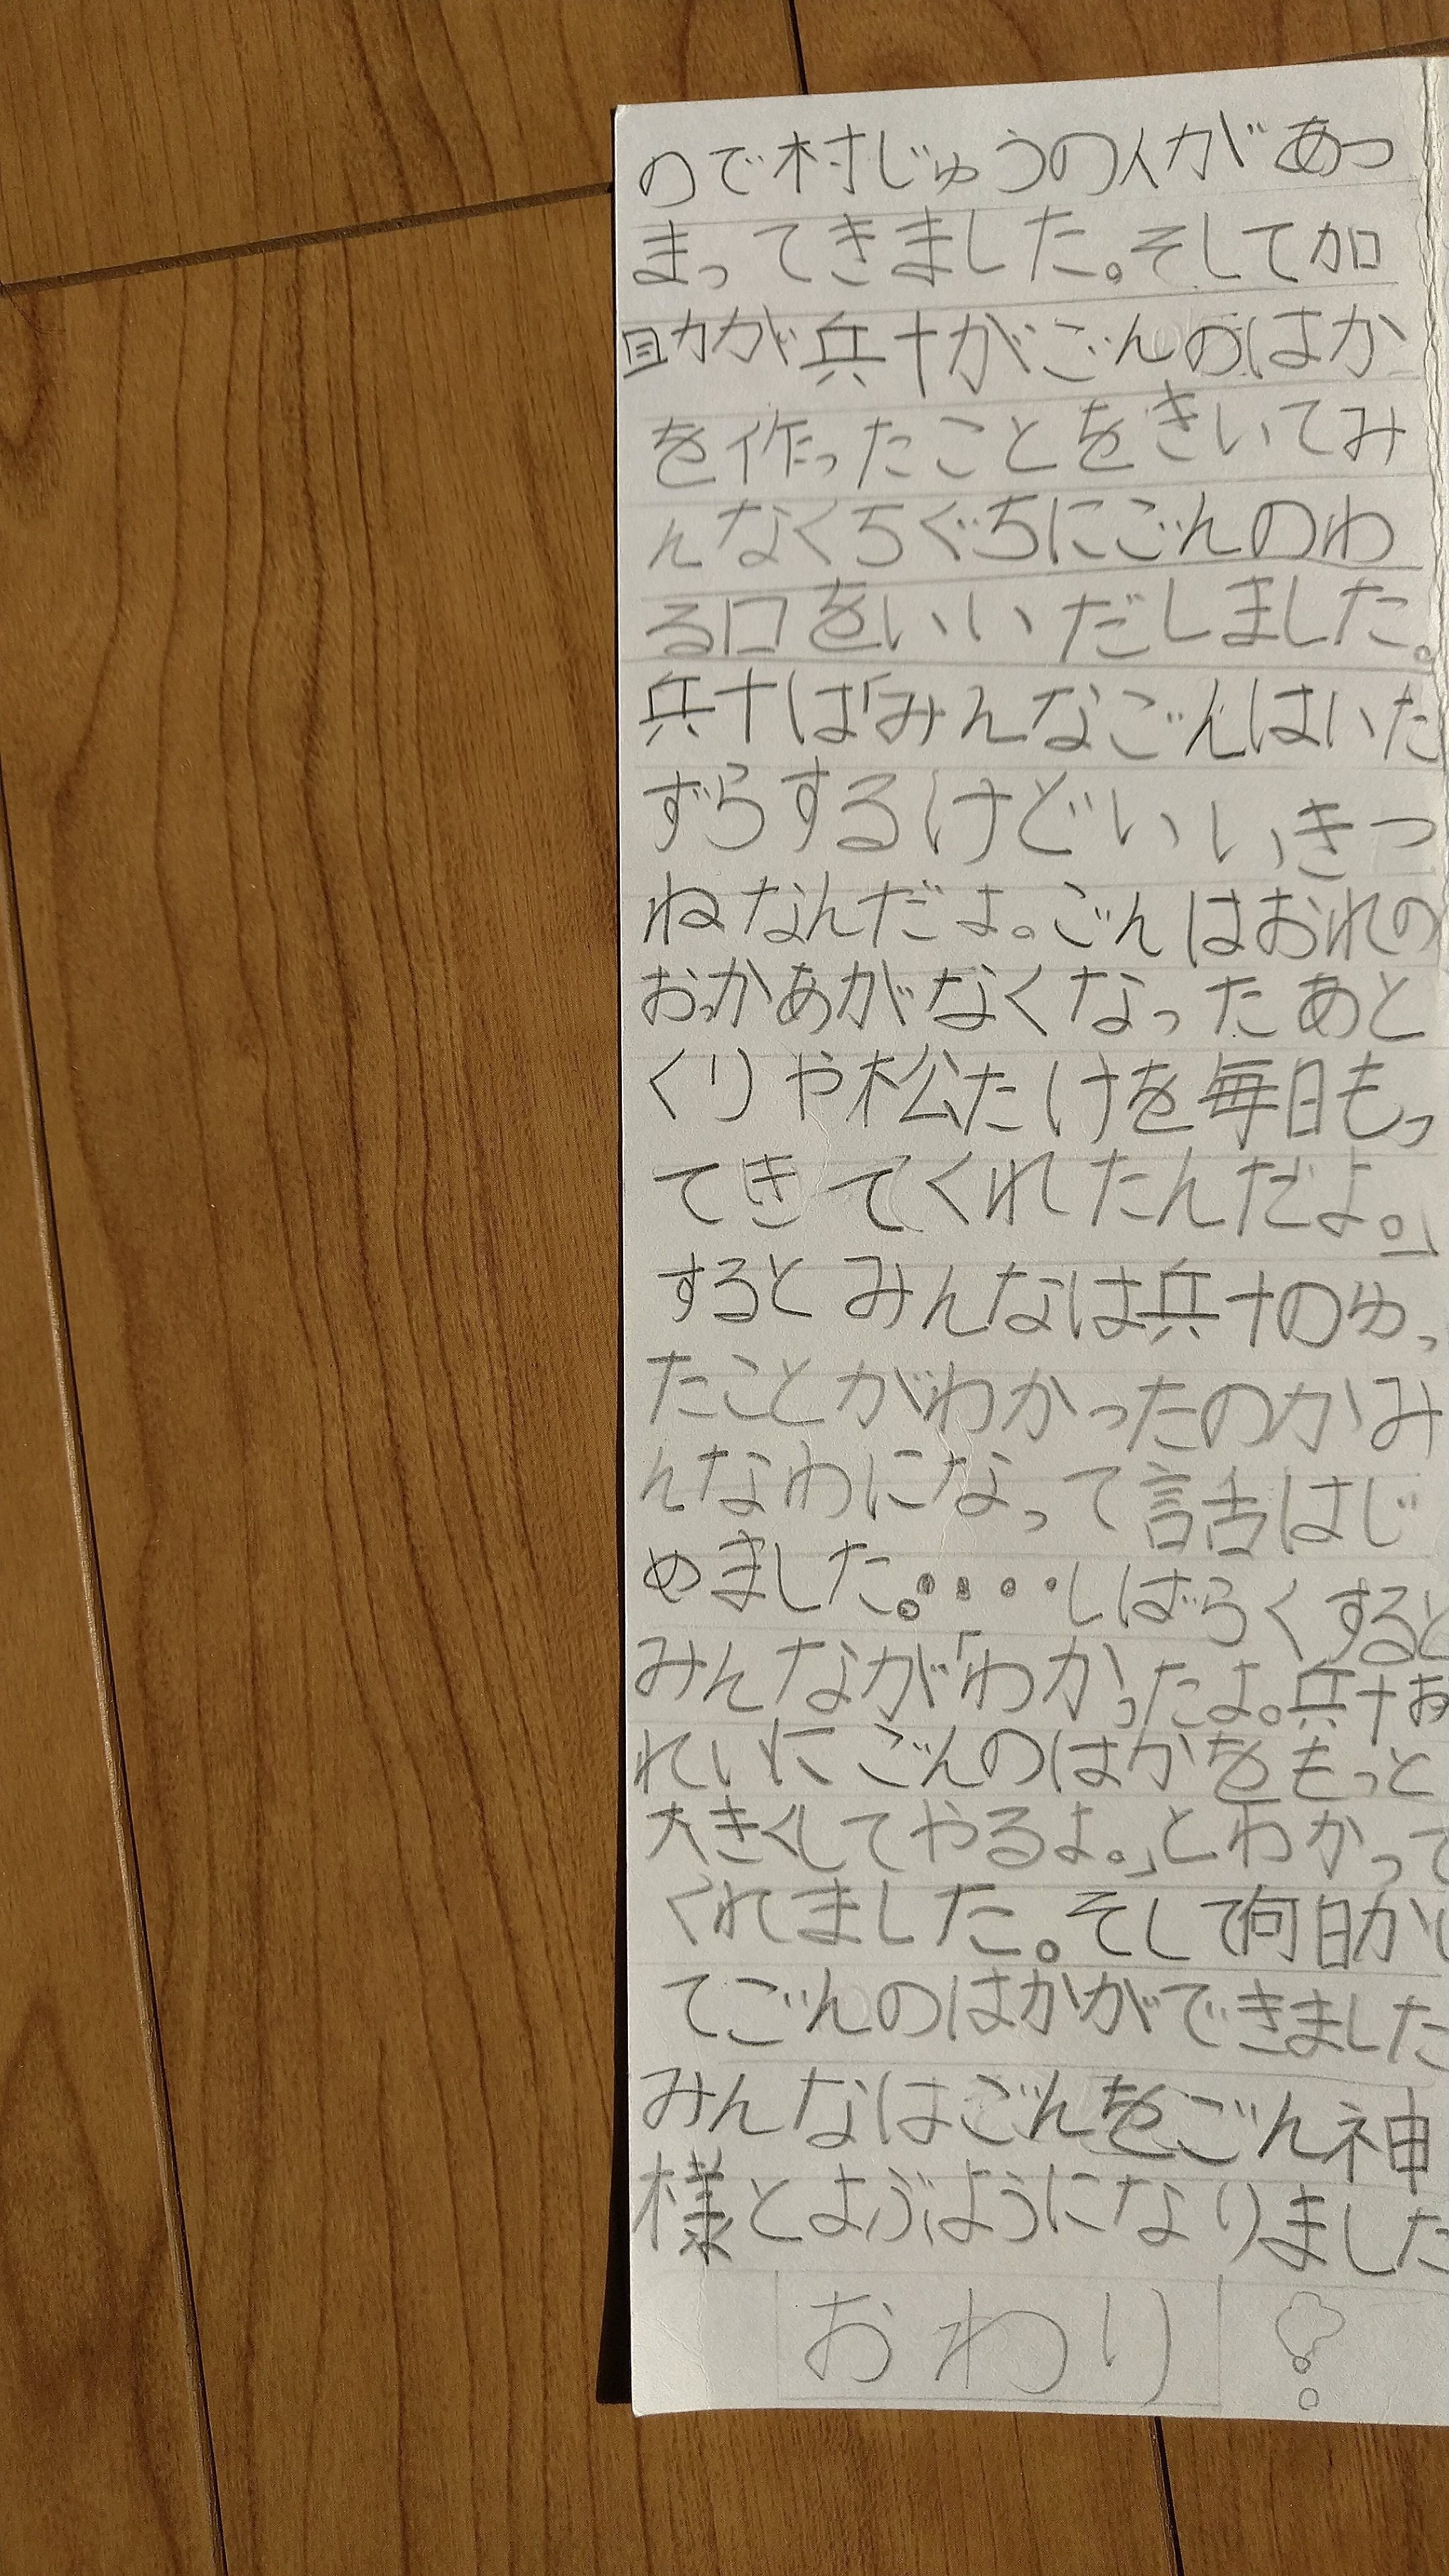 ので村じゅうの人があつ
まってきました。そして加
助が兵十がごんのはか
を作ったことをきいてみ
んなくちぐちにごんのわ
る口をいいだしました。
兵十は「みんなごんはいた
ずらするけどいいきつ
ねなんだよ。ごんはおれの
おっかあがなくなったあと
くりや松たけを毎日もっ
てきてくれたんだよ。」
するとみんなは兵十のゆっ
たことがわかったのかみ
んなわになって話はじ
めました。・・・・しばらくすると
みんなが「わかったよ。兵十お
れいにごんのはかをもっと
大きくしてやるよ。」とわかって
くれました。そして何日かし
てごんのはかができました
みんなはごんをごん神
様とよぶようになりました
おわり